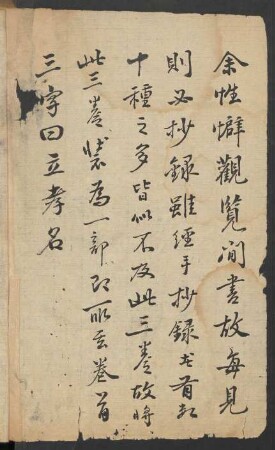 余性癖觀覽閒書故每見
則必抄錄雖經手抄錄者有數
十種之多皆似不及此三卷故將
此三卷裝為一部即所云卷首
三字曰立孝名